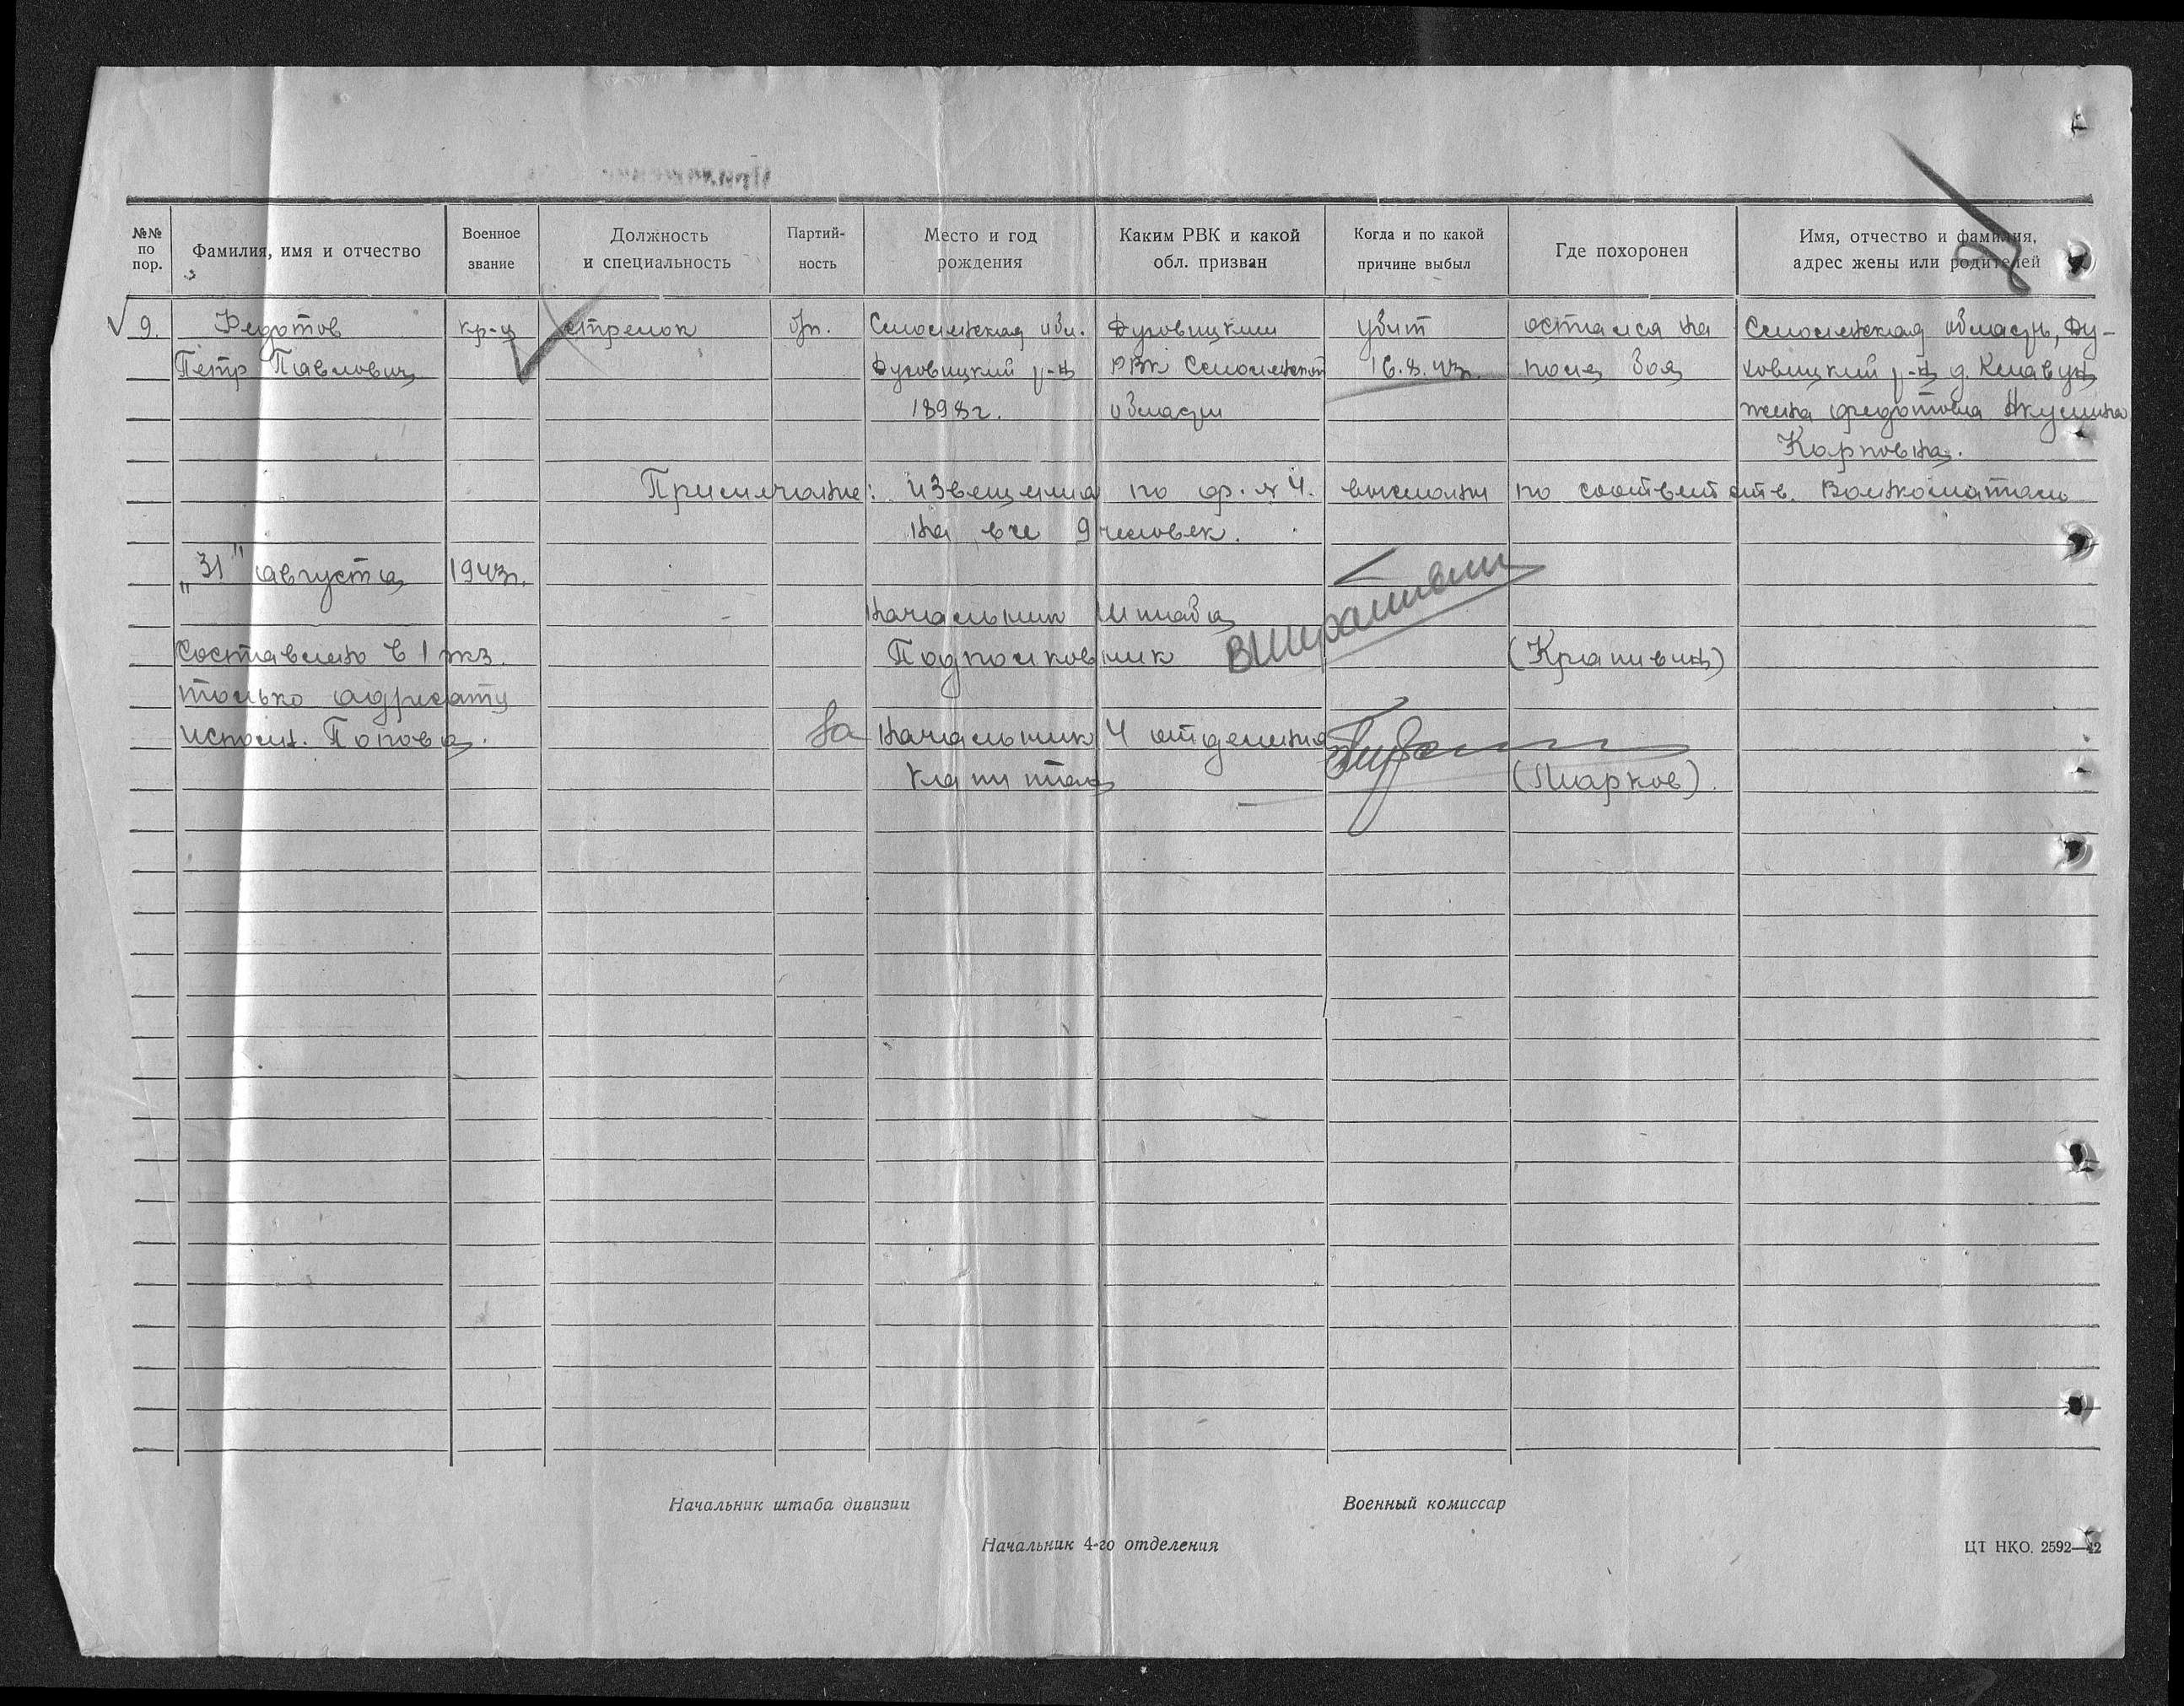 №№ по пор.
Фамилия, имя и отчество
Военное звание
Должность и специальность
Партий-ность
Место и год рождения
Каким РВК и какой обл. призван
Когда и по какой причине выбыл
Где похоронен
Имя, отчество и фамилия, адрес жены или родителей
√ 9. Федотов кр-ц стрелок б/п. Смоленская обл. Духовицкий убит остался на Смоленская область, Ду-
Петр Павлович Духовицкий р-н РВК Смоленской 16.8.43г. поле боя ховицкий р-н д.
1898г. области жена Федотова Акулина
Карповна.
Примечание: извещения по ф. № 4. высланы по соответств. Военкоматам
на все 9 человек.
„31" августа 1943г.
Начальник штаба
Составлено в 1 экз. Подполковник (Крапивин)
только адресату
исполн. Попова. За Начальник 4 отделения
капитан (Марков).
Начальник штаба дивизии Военный комиссар
Начальник 4-го отделения ЦТ НКО. 2592—42